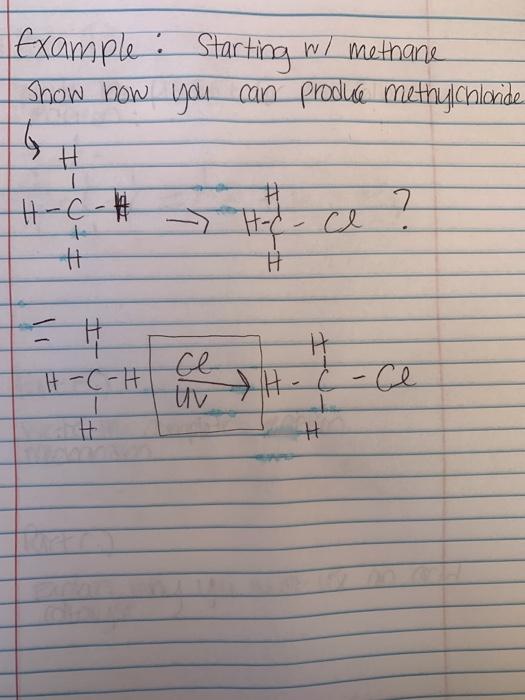 Example: Starting w/ methane
Show how you can produce methylchloride
H
H-C-H → H-C-Cl ?
H
H
H
=
H
H-C-H Cl UV → H-C-Cl
H
H
H